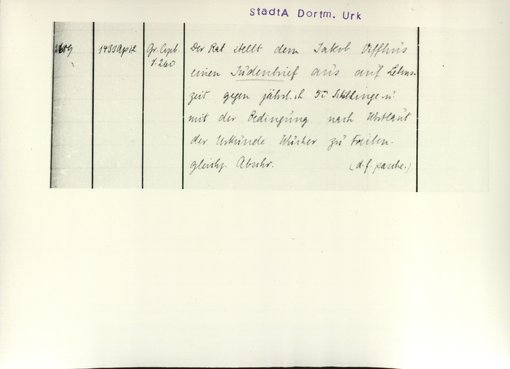 StadtA Dortm. Urk
2609 1433 April 2 Gr. Copb. Der Rat stellt dem Jakob
f. 260 einen Judenbrief aus auf Lebens-
zeit gegen jährlich 50 Schillinge u.
mit der Bedingung nach Wortlaut
der Urkunde Wucher zu treiben.
gleichz. Abschr. (d. f. pasche.)